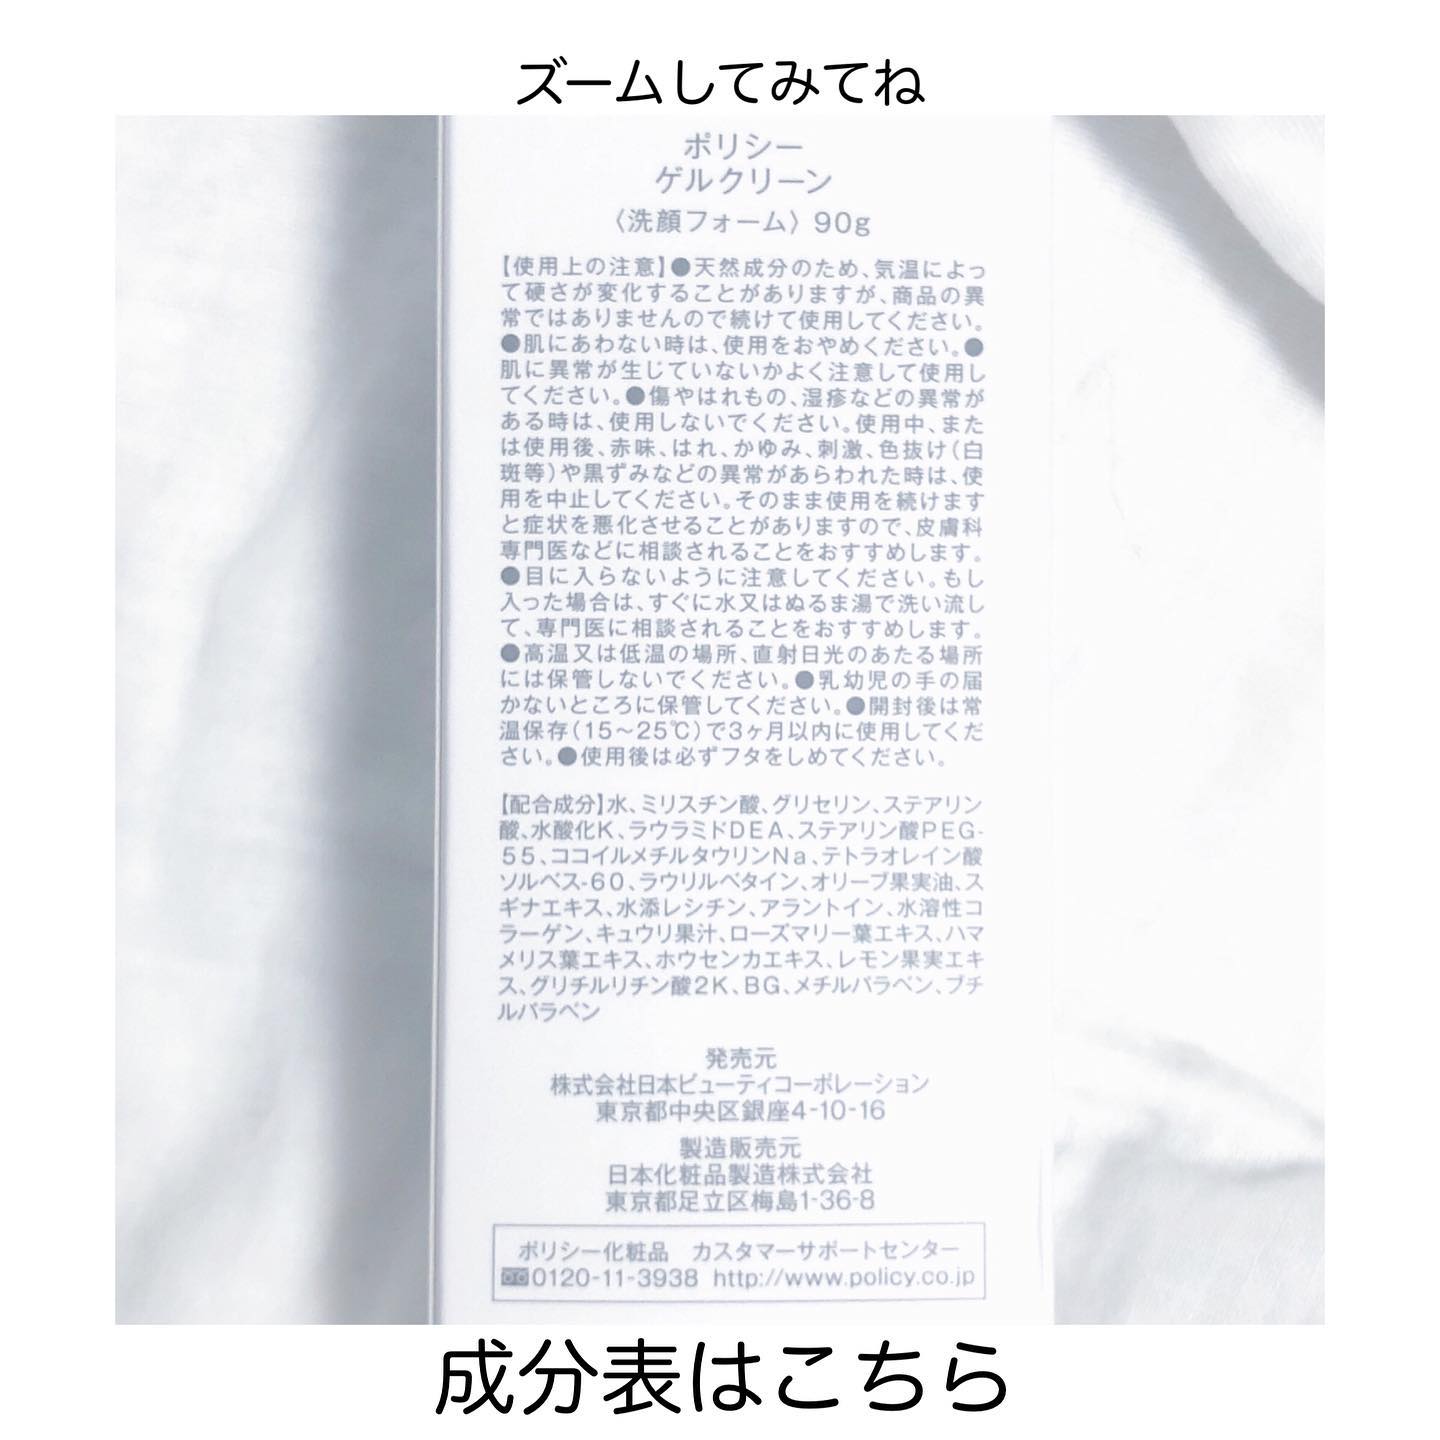 ズームしてみてね
ポリシー
ゲルクリーン
〈洗顔フォーム〉90g
【使用上の注意】●天然成分のため、気温によっ
て硬さが変化することがありますが、商品の異
常ではありませんので続けて使用してください。
●肌にあわない時は、使用をおやめください。●
肌に異常が生じていないかよく注意して使用し
てください。●傷やはれもの、湿疹などの異常が
ある時は、使用しないでください。使用中、また
は使用後、赤味、はれ、かゆみ、刺激、色抜け(白
斑等)や黒ずみなどの異常があらわれた時は、使
用を中止してください。そのまま使用を続けます
と症状を悪化させることがありますので、皮膚科
専門医などに相談されることをおすすめします。
●目に入らないように注意してください。もし
入った場合は、すぐに水又はぬるま湯で洗い流し
て、専門医に相談されることをおすすめします。
●高温又は低温の場所、直射日光のあたる場所
には保管しないでください。●乳幼児の手の届
かないところに保管してください。●開封後は常
温保存(15〜25℃)で3ヶ月以内に使用してくだ
さい。●使用後は必ずフタをしめてください。
【配合成分】水、ミリスチン酸、グリセリン、ステアリン
酸、水酸化K、ラウラミドDEA、ステアリン酸PEG-
55、ココイルメチルタウリンNa、テトラオレイン酸
ソルベス-60、ラウリルベタイン、オリーブ果実油、ス
ギナエキス、水添レシチン、アラントイン、水溶性コ
ラーゲン、キュウリ果汁、ローズマリー葉エキス、ハマ
メリス葉エキス、ホウセンカエキス、レモン果実エキ
ス、グリチルリチン酸2K、BG、メチルパラベン、ブチ
ルパラベン
発売元
株式会社日本ビューティコーポレーション
東京都中央区銀座4-10-16
製造販売元
日本化粧品製造株式会社
東京都足立区梅島1-36-8
ポリシー化粧品 カスタマーサポートセンター
0120-11-3938 http://www.policy.co.jp
成分表はこちら